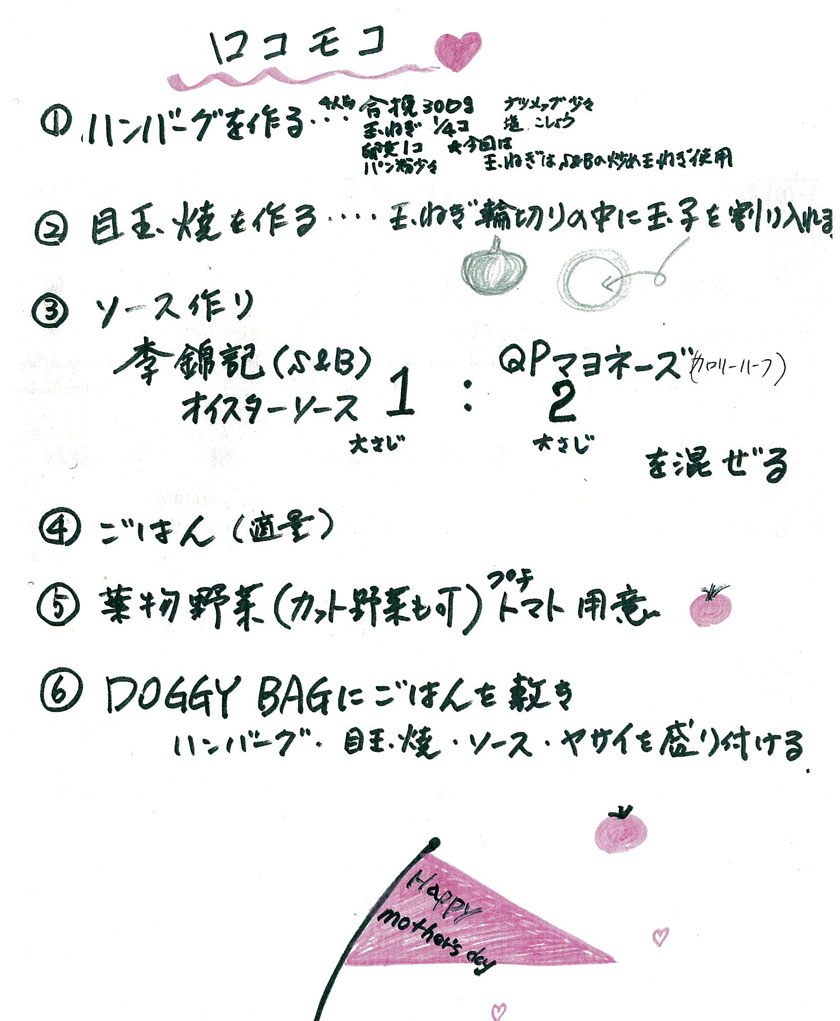 ロコモコ
① ハンバーグを作る・・・ 4人分 合挽300g ナツメッグ少々
玉ねぎ 1/4コ 塩 こしょう
卵黄1コ ★今回は
パン粉少々 玉ねぎはS&Bの炒め玉ねぎ使用
② 目玉焼を作る・・・・玉ねぎ輪切りの中に玉子を割り入れる
③ ソース作り
李錦記(S&B) QPマヨネーズ(カロリーハーフ)
オイスターソース 1 : 2
大さじ 大さじ
を混ぜる
④ ごはん(適量)
⑤ 葉物野菜(カット野菜も可)プチトマト用意
⑥ DOGGY BAGにごはんを敷き
ハンバーグ・目玉焼・ソース・ヤサイを盛り付ける.
Happy
mother's day